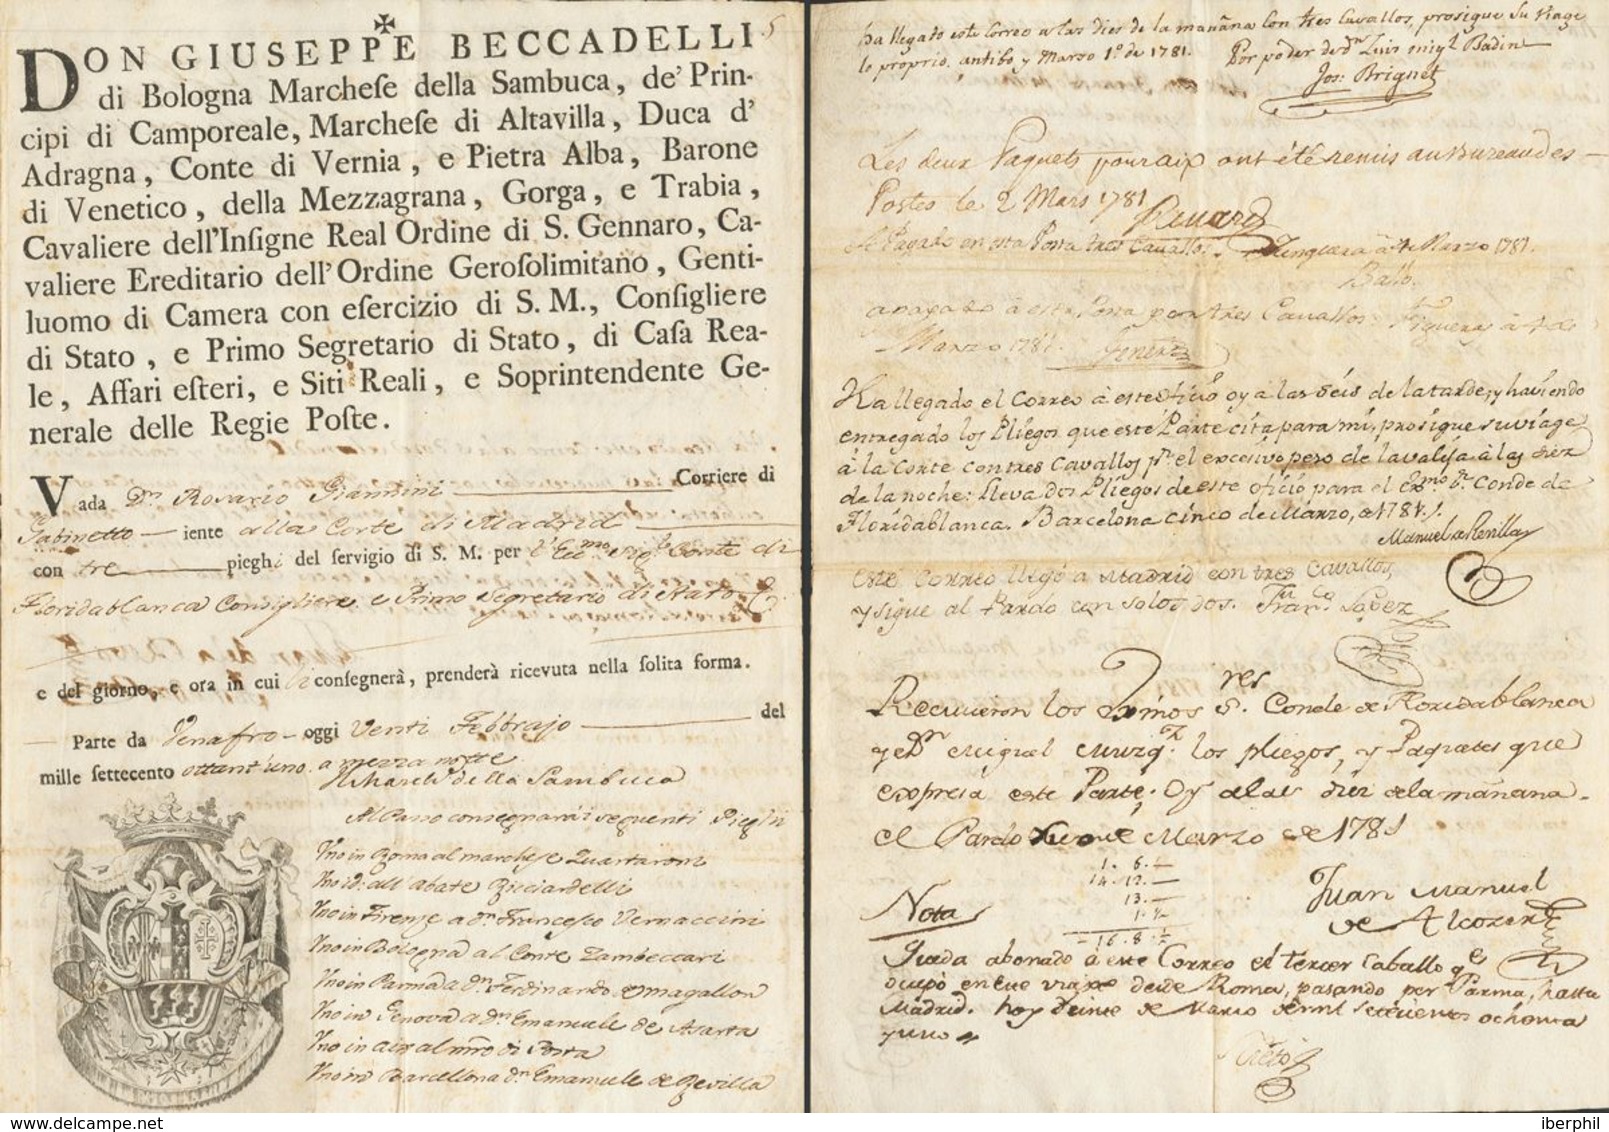 DON GIUSEPPE BECCADELLI 5
di Bologna Marcheſe della Sambuca, de' Prin-
cipi di Camporeale, Marcheſe di Altavilla, Duca d'
Adragna, Conte di Vernia, e Pietra Alba, Barone
di Venetico, della Mezzagrana, Gorga, e Trabia,
Cavaliere dell'Inſigne Real Ordine di S. Gennaro, Ca-
valiere Ereditario dell'Ordine Geroſolimitano, Genti-
luomo di Camera con eſercizio di S. M., Conſigliere
di Stato, e Primo Segretario di Stato, di Caſa Rea-
le, Affari eſteri, e Siti Reali, e Soprintendente Ge-
nerale delle Regie Poſte.
Vada Dn. Rosario Giannini Corriere di
Gabinetto iente alla Corte di Madrid
con tre pieghi del ſervigio di S. M. per l'Ecc.mo Sig.r Conte di
Floridablanca Consigliere e Primo Segretario di Stato
e del giorno, e ora in cui li conſegnerà, prenderà ricevuta nella ſolita forma.
Parte da Venafro oggi Venti Febbrajo del
mille ſettecento ottant'uno a mezza notte
Il March.e della Sambuca
Al Passo consegnarà i seguenti Pieghi
Uno in Roma al marchese Quartaroni
Uno id: all'abate Ricciardelli
Uno in Firenze a Dn. Francesco Vernaccini
Uno in Bologna al Conte Zambeccari
Uno in Parma a Dn. Ferdinando Magallon
Uno in Genova a Dn. Emanuele de Asarta
Uno in Aix al mro di Posta
Uno in Barcellona Dn. Emanuele de Revilla
ha llegado este Correo a las dies de la mañana Con tres Cavallos, prosigue su Viage
lo proprio, antibo y Marzo 1º de 1781. Por poder de dn. Luis migl Badin
Jos: Brignet
Les deux Paquets pour aix ont été remis au Bureau des
Postes le 2 Mars 1781
Se Pagado en esta Posta tres Cavallos. Junquera à 4 Marzo 1781.
apagado à esta Posta por tres Cavallos Figueras à 4 de
Marzo 1781.
Ha llegado el Correo à este Oficio oy a las séis de la tarde, y haviendo
entregado los Pliegos que este Parte cita para mi, prosigue su viage
à la Corte con tres Cavallos pr. el excesivo peso de la valija à las diez
de la noche: lleva dos Pliegos de este oficio para el Exmo Sr. Conde de
Floridablanca. Barcelona cinco de Marzo, de 1781.
Manuel de Revilla
este Correo llegó a Madrid con tres Cavallos,
y sigue al Pardo con solos dos. Franco. Lopez
Recivieron los Exmos Sres. Conde de Floridablanca
y Dn Miguel Muzqz. los pliegos, y Paquetes que
expresa este Parte, Oy a las diez de la mañana.
el Pardo nueve Marzo de 1781
1. 6.
14. 12.
13.
16. 8.
Juan Manuel
de Alcozer
Nota
Queda abonado à este Correo el tercer Caballo qe.
ocupó en su viaje desde Roma, pasando por Parma, hasta
Madrid. hoy Veinte de Marzo de mil setecientos ochenta
y uno
iberphil